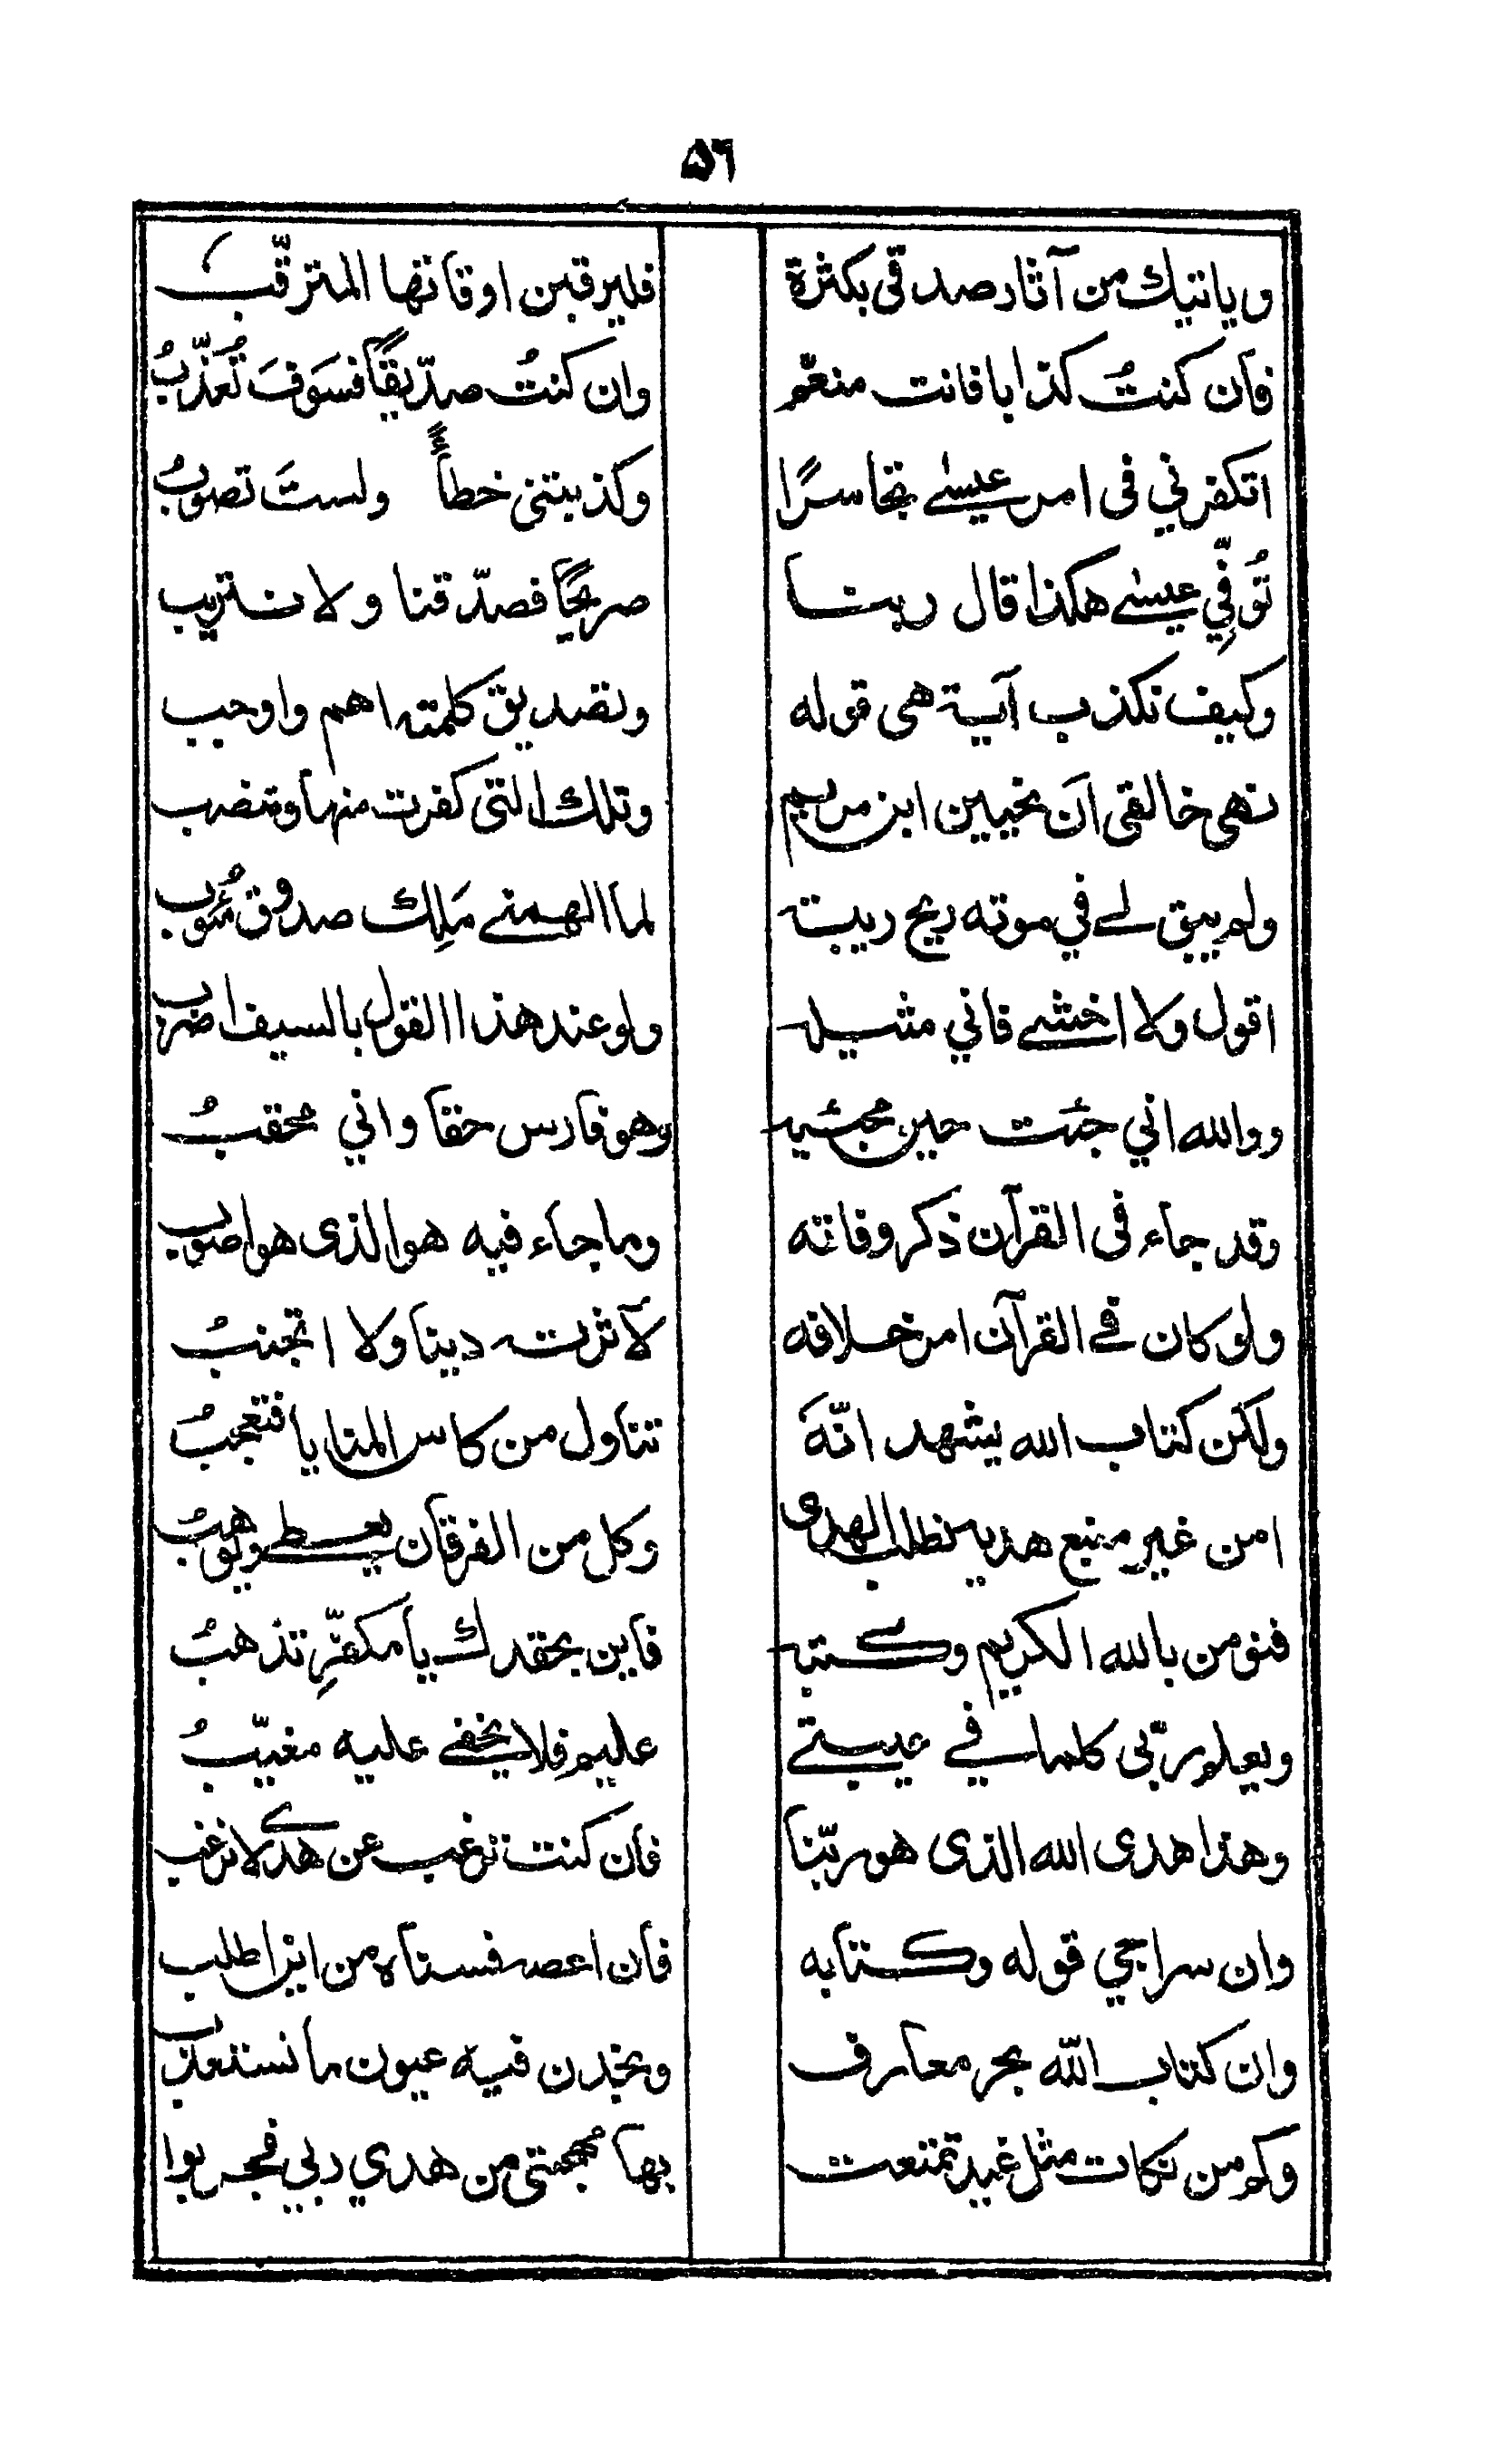 ٥٦
وياتيك من آثار صدقى بكثرة فليرقبن اوقاتها المترقّب
فان كنتُ كذابا فانت منعّم وان كنتُ صدّيقًا فسَوفَ تُعذّبُ
اتكفرني فى امر عيسٰے تجاسرًا وكذبتنى خطأً ولستَ تصوّبُ
تُوفّي عيسٰے هكذا قال ربنا صريحًا فصدّقنا ولا نستريب
وكيف نكذب آية هى قوله وتصديق كلمته اهم واوجب
نهى خالقى ان نحيين ابن مريم وتلك التى كفرت منها وتنصب
ولم يبق لے في موته ريح ريبة لما الهمنے مَلِك صدوق مُئوّب
اقول ولا اخشے فاني مثيله ولو عند هذا القول بالسيف اضرب
ووالله اني جئت حين مجئيه وهو فارس حقا واني محقبُ
وقد جاء فى القرآن ذكر وفاته وما جاء فيه هو الذى هو اصوب
ولو كان فے القرآن امر خلافه لآثرته دينا ولا اتجنبُ
ولكن كتاب الله يشهد انّهَ تناول من كاس المنايا فتعجبُ
امن غير منبع هديه نطلب الهدى وكل من الفرقان يعطے ويوهبُ
فنومن بالله الكريم وكتبه فاين بحقدك يا مكفّرِ تذهبُ
ويعلم ربّى كلما فے عيبتے عليم فلا يخفے عليه مغيّبُ
وهذا هدى الله الذى هو ربّنا فان كنت ترغب عن هدى لا نرغب
وان سراجي قوله وكتابه فان اعصه فسناه من اين اطلب
وان كتاب اللّه بحر معارف ونجدن فيه عيون ما نستعذب
وكم من نكات مثل غيد تمتعت بها مُهجتى من هدي ربي فجربوا